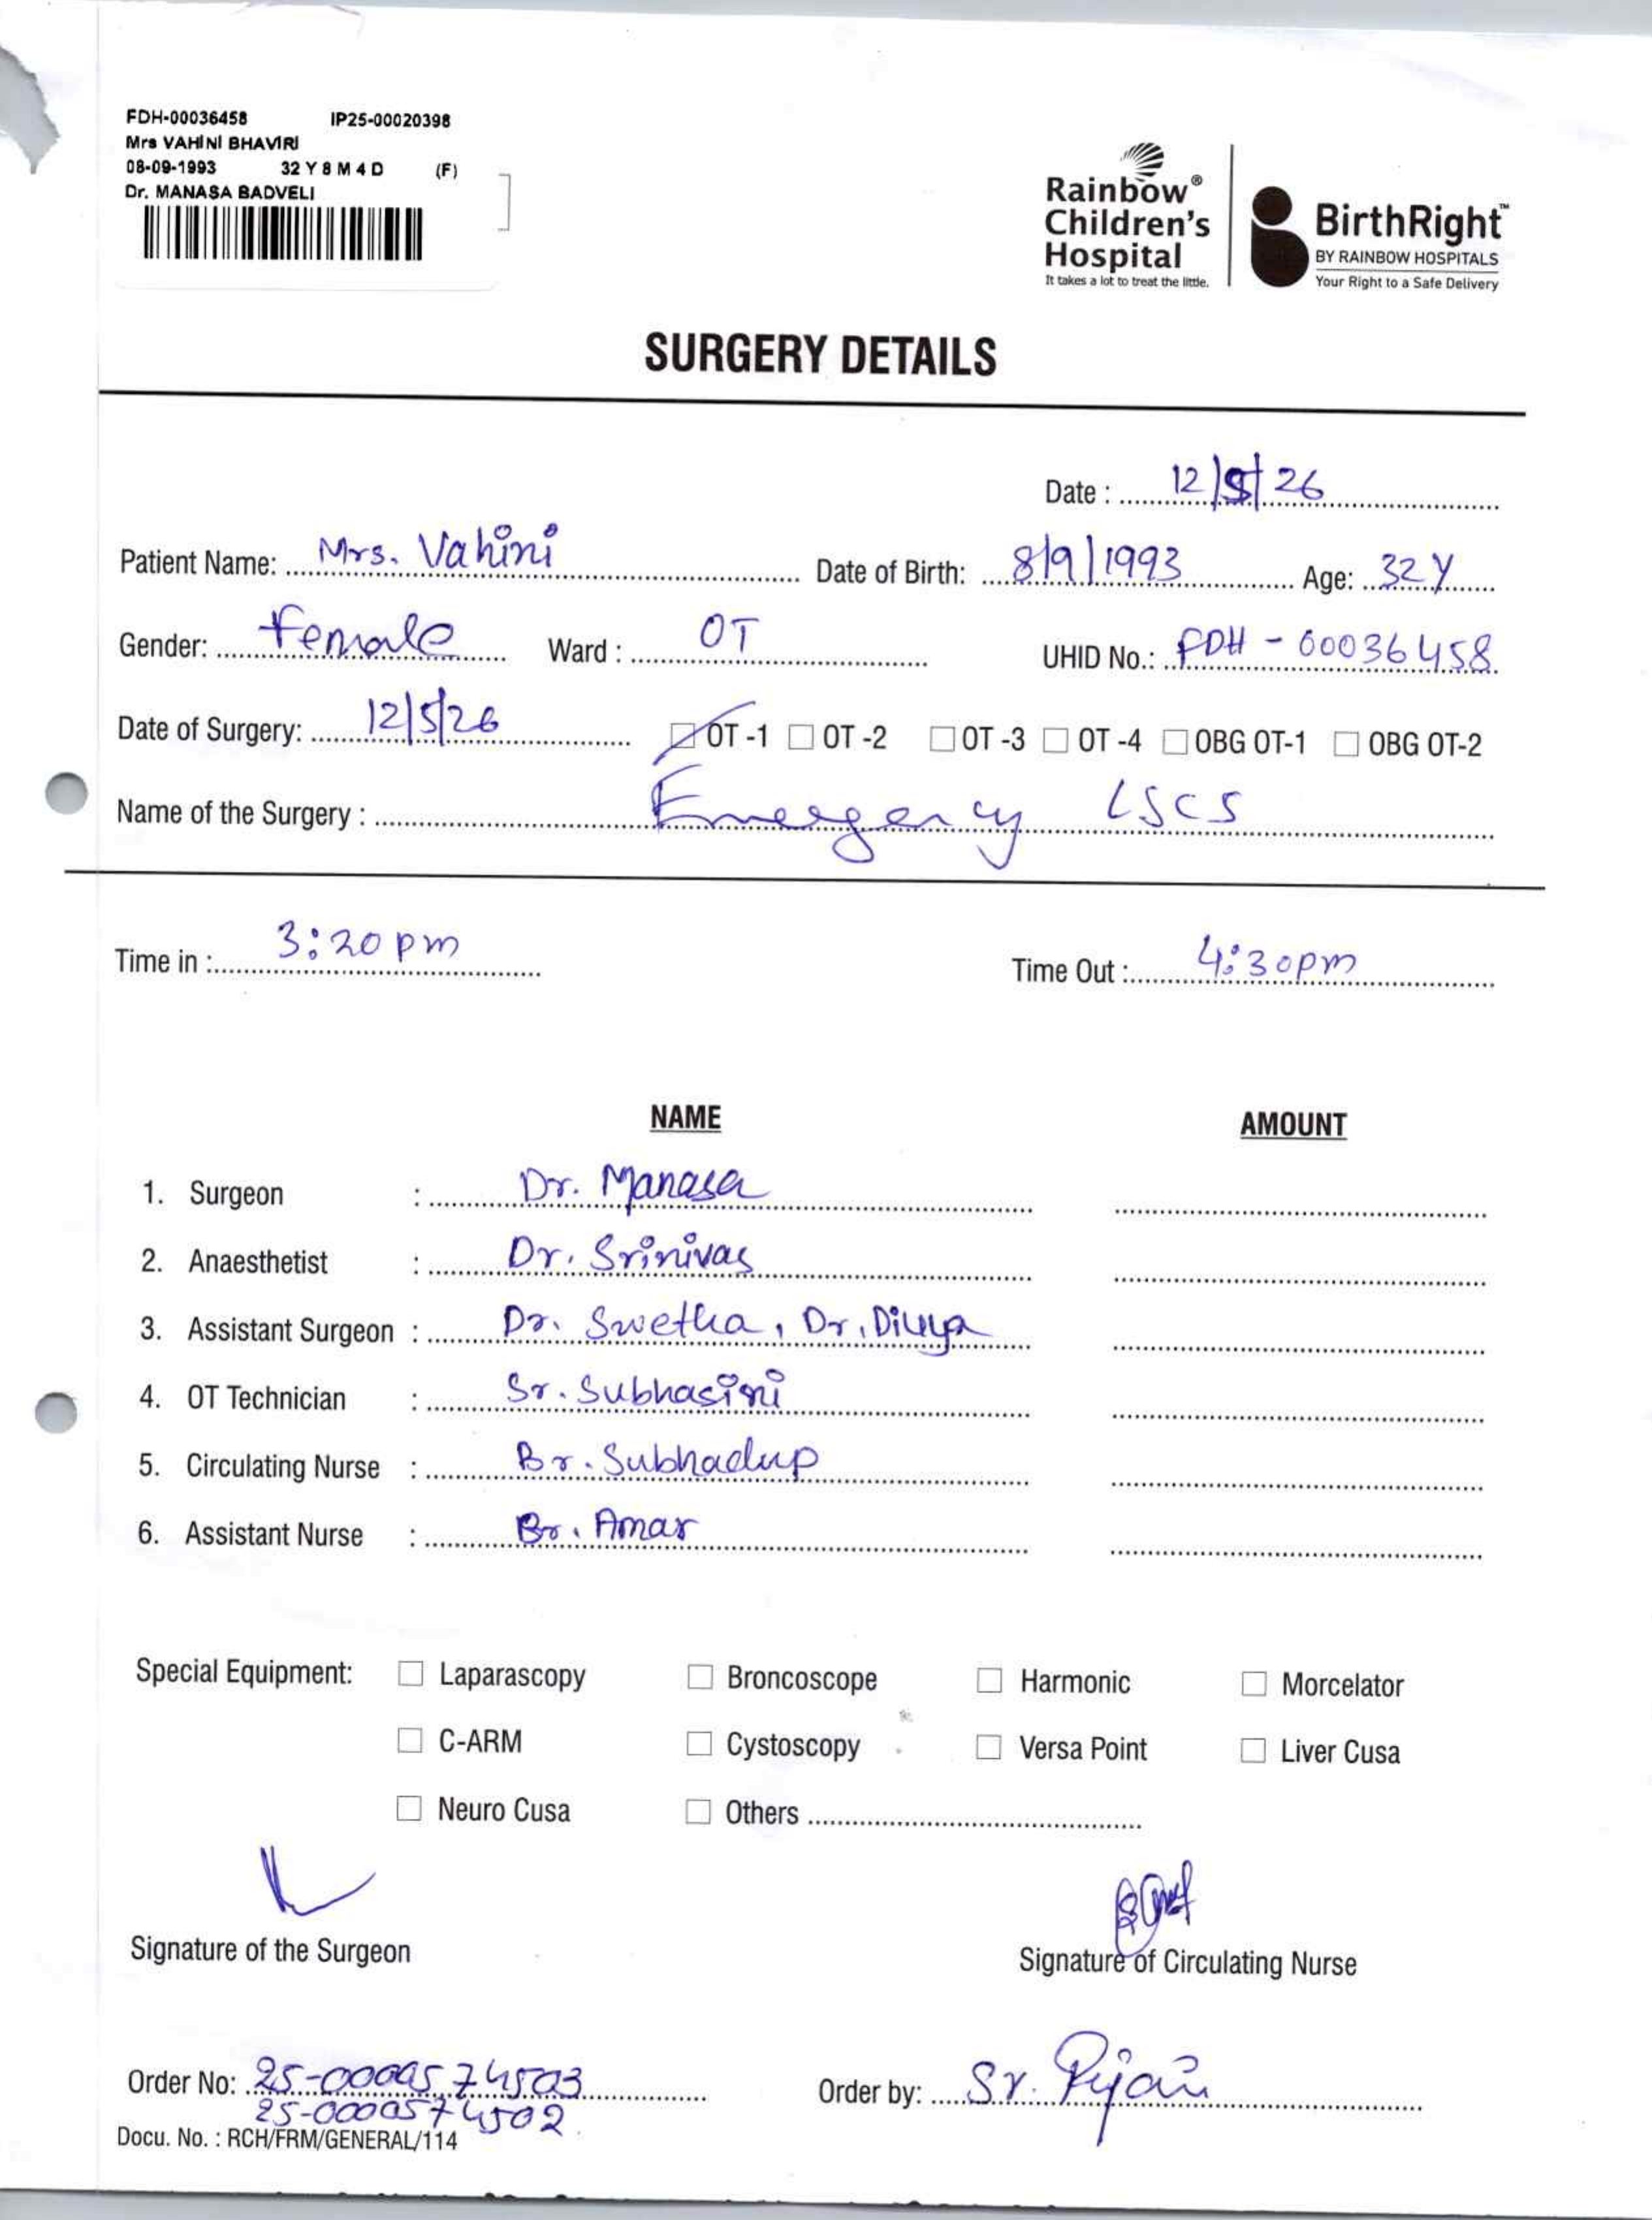 FDH-00036458 IP25-00020398
Mrs VAHINI BHAVIRI
08-09-1993 32 Y 8 M 4 D (F)
Dr. MANASA BADVELI
Rainbow®
Children's
Hospital
It takes a lot to treat the little.
BirthRight™
BY RAINBOW HOSPITALS
Your Right to a Safe Delivery
SURGERY DETAILS
Date : 12/5/26
Patient Name: Mrs. Vahini Date of Birth: 8/9/1993 Age: 32 Y
Gender: Female Ward : OT UHID No.: FDH - 00036458
Date of Surgery: 12/5/26 OT -1 OT -2 OT -3 OT -4 OBG OT-1 OBG OT-2
Name of the Surgery : Emergency LSCS
Time in : 3:20 pm Time Out : 4:30pm
NAME AMOUNT
1. Surgeon : Dr. Manasa
2. Anaesthetist : Dr. Srinivas
3. Assistant Surgeon : Dr. Swetha, Dr.
4. OT Technician : Sr. Subhasini
5. Circulating Nurse : Br.
6. Assistant Nurse : Br. Amar
Special Equipment: Laparascopy Broncoscope Harmonic Morcelator
C-ARM Cystoscopy Versa Point Liver Cusa
Neuro Cusa Others
Signature of the Surgeon Signature of Circulating Nurse
Order No: Order by: Sr.
Docu. No. : RCH/FRM/GENERAL/114